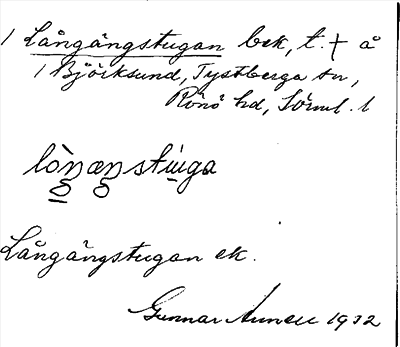 1 Långängstugan bek, t. † å
1 Björksund, Tystberga sn,
Rönö hd, Sörml. 1
lòŋæŋstùga
Långängstugan ek.
Gunnar 1932